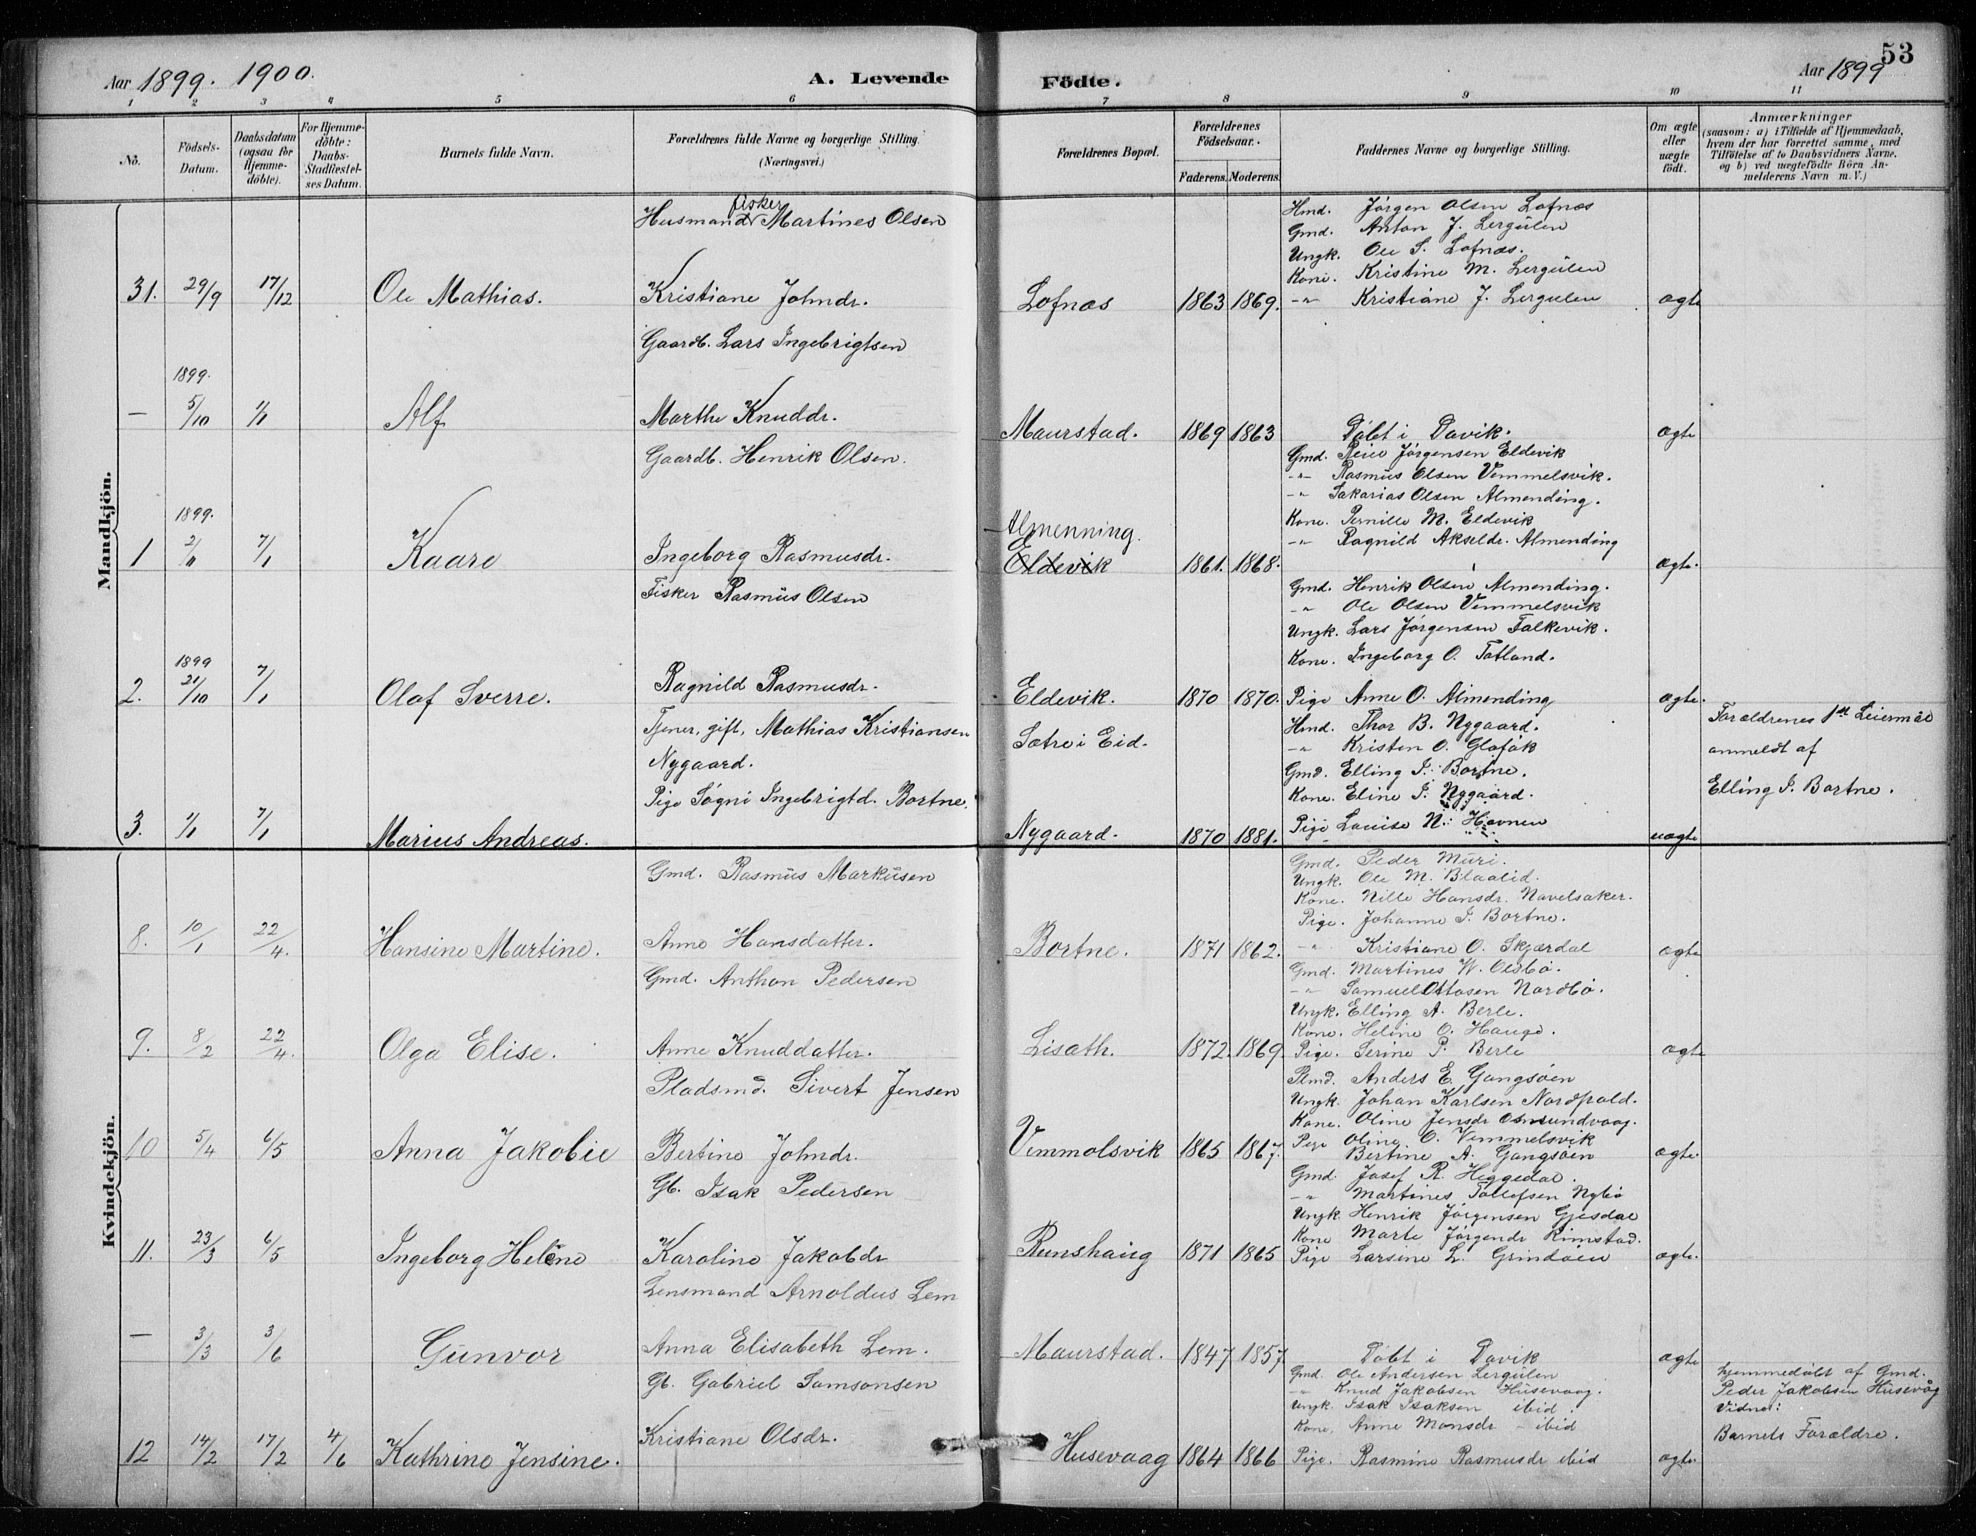 Aar 1899. 1900.
A. Levende
Födte.
Aar 1899
53
1 2 3 4 5 6 7 8 9 10 11
No.
Födsels-Datum.
Daabsdatum (ogsaa for Hjemme-döbte).
For Hjemme-döbte: Daabs-Stadfæstel-ses Datum.
Barnets fulde Navn.
Forældrenes fulde Navne og borgerlige Stilling. (Næringsvei.)
Forældrenes Bopæl.
Forældrenes Födselsaar.
Faderens. Moderens.
Faddernes Navne og borgerlig Stilling.
Om ægte eller uægte födt.
Anmærkninger
(saasom: a) i Tilfælde af Hjemmedaab,
hvem der har forrettet samme, med
Tilföielse af to Daabsvidners Navne.
og b) ved uægtefödte Börn An-
melderens Navn m. V.)
Mandkjön.
fisker
Husmand Martines Olsen
Hmd. Jörgen Olsen Lofnæs
Gmd. Anton J. Lergulen
Ungk. Ole S. Lofnæs.
Kone. Kristine M. Lergulen
31. 29/9 17/12 Ole Mathias. Kristiane Johndr. Lofnæs 1863 1869. -"- Kristiane J. Lergulen ægte
Gaardb. Lars Ingebrigtsen
1899.
— 5/10 1/1 Alf Marthe Knuddr. Maurstad. 1869 1863 Döbt i Davik. ægte
Gaardb. Henrik Olsen.
Gmd. Peiee Jörgensen Eldevik
-"- Rasmus Olsen Vemmelsvik.
-"- Sakarias Olsen Almending.
Kone. Pernille M. Eldevik
1899.
Almenning.
-"- Ragnild Akseldr. Almending
1 2/11 7/1 Kaare Ingeborg Rasmusdr. Eldevik 1861. 1868. ægte.
Fisker Rasmus Olsen
Gmd. Henrik Olsen Almending.
-"- Ole Olsen Vemmelsvik
Ungk. Lars Jörgensen Falkevik.
Kone. Ingeborg O. Totland.
1899
2. 21/10 7/1 Olaf Sverre. Ragnild Rasmusdr. Eldevik. 1870 1870. Pige Anne O. Almending ægte.
Tjener, gift, Mathias Kristiansen
Nygaard.
Sætre i Eid.
Hmd. Thor B. Nygaard.
-"- Kristen O. Glofök
Gmd. Elling I. Bortne.
Kone. Eline I. Nygaard.
Forældrenes 1st Leiermål
anmeldt af
Elling I. Bortne.
Pige Sögni Ingebrigtd. Bortne.
3. 1/1 7/1 Marius Andreas. Nygaard. 1870 1881. Pige Louise N. Havnen uægte
Kvindekjön.
Gmd. Rasmus Markusen
Gmd. Peder Muri.
Ungk. Ole M. Blaalid.
Kone. Nille Hansdr. Navelsaker.
Pige. Johanne I. Bortne.
8. 10/1 22/4. Hansine Martine. Anne Hansdatter. Bortne. 1871 1862. -"- Kristiane O. Skjærdal ægte
Gmd. Anthon Pedersen
Gmd. Martines W. Olsbö.
-"- Samuel Ottosen Nordbö.
Ungk. Elling A. Berle.
Kone. Heline O. Hauge.
9. 8/2 22/4. Olga Elise. Anne Knuddatter. Lisæth. 1872. 1869. Pige. Serine P. Berle ægte
Pladsmd. Sivert Jensen
Plmd. Anders E. Gangsöen
Ungk. Johan Karlsen Nordpold.
Kone. Oline Jensdr Osmundvaag.
Pige Oline O. Vemmelsvik
10 5/4 6/5 Anna Jakobie Bertine Johndr. Vemmelsvik 1865 1867. Bertine A. Gangsöen ægte.
Gb. Isak Pedersen
Gmd. Josef R. Heggedal.
-"- Martines Tollefsen Nybö
Ungk. Henrik Jörgensen Gjesdal
Kone Marte Jörgendr Rimstad.
11. 23/3 6/5 Ingeborg Helene Karoline Jakobdr Runshaug 1871 1865 Pige Larsine L. Grindöen ægte.
Lensmand Arnoldus Lem
— 3/3 3/6 Gunvor Anna Elisabeth Lem. Maurstad. 1847 1857. Döbt i Davik ægte
Gb. Gabriel Samsonsen
Gmd. Ole Andersen Lergulen
-"- Knud Jakobsen Husevaag.
Ungk. Isak Isaksen ibid.
Kone, Anne Monsdr - ibid
hjemmedöbt af Gmd.
Peder Jakobsen Husevåg
Vidne:
Barnets Forældre.
12 14/2 17/2 4/6 Kathrine Jensine. Kristiane Olsdr. Husevaag 1864 1866 Pige. Rasmine Rasmusdr ibid ægte.